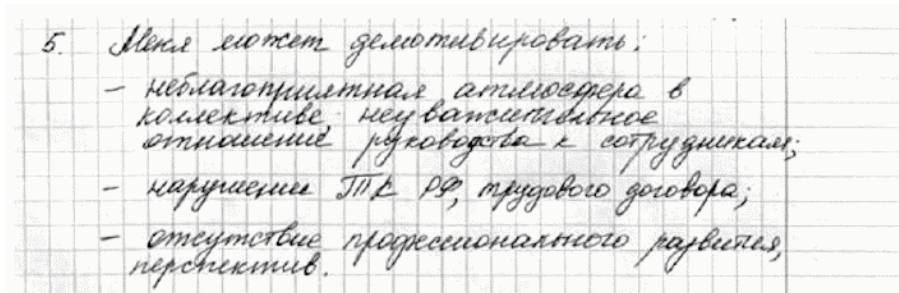 5. Меня может демотивировать:
– неблагоприятная атмосфера в
коллективе неуважительное
отношение руководства к сотрудникам;
– нарушение ТК РФ, трудового договора;
– отсутствие профессионального развития,
перспектив.